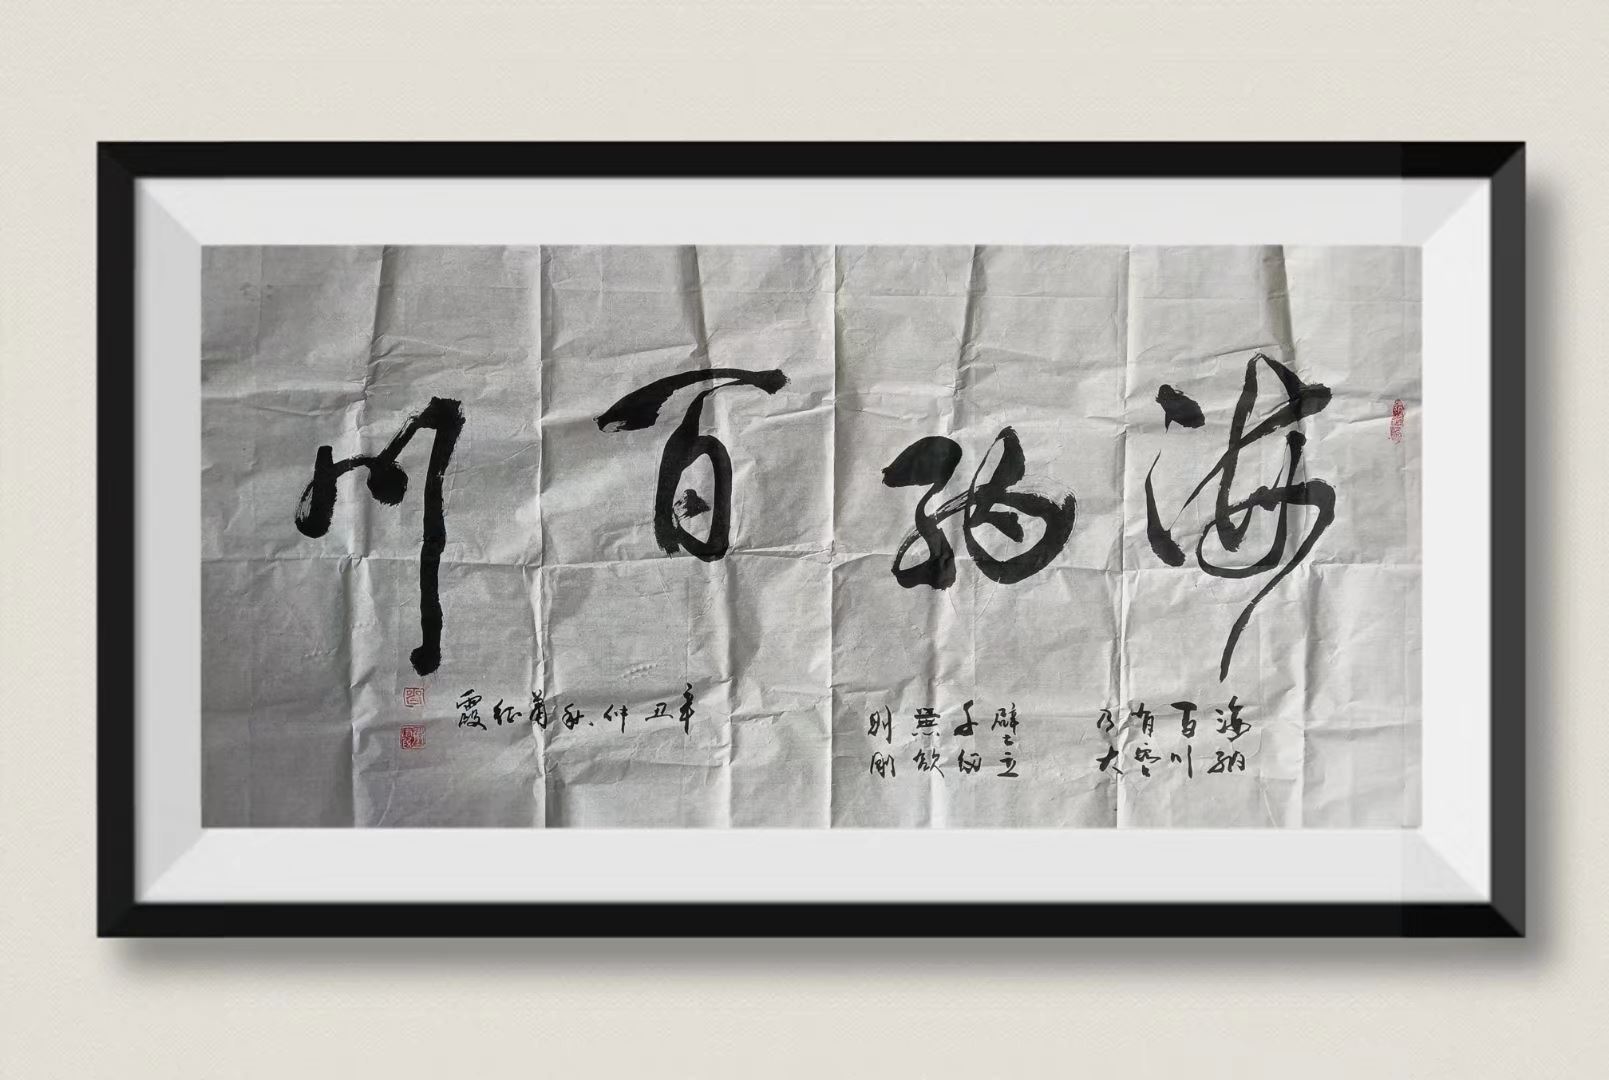 海纳百川
海纳
百川
有容
乃大
壁立
千仞
無欲
则刚
辛丑仲秋
征霞